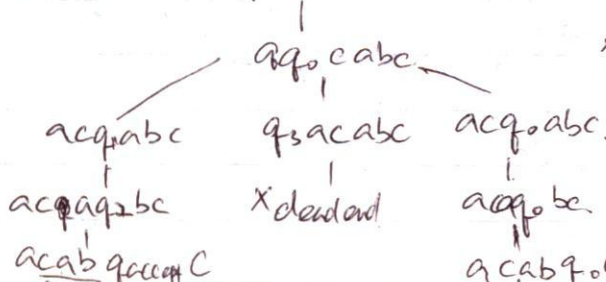 aq₀cabc
acq₁abc q₃acabc acq₀abc
acaq₂bc x deadend acaq₀bc
acab q accept C acabq₀